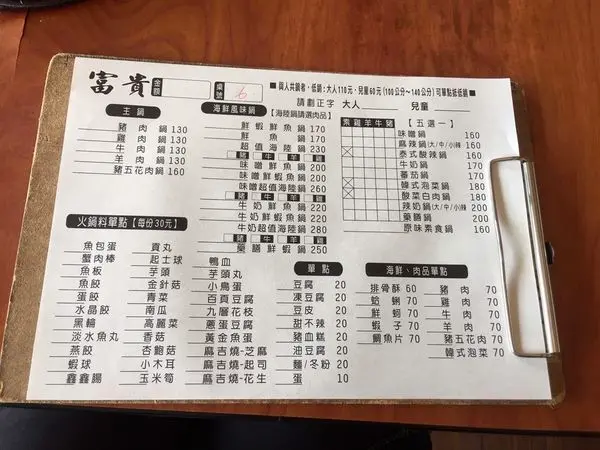 富貴 金額 桌號 6
■與人共鍋者，低銷：大人110元，兒童60元(100公分～140公分)可單點抵低銷■
請劃正字 大人 兒童
主鍋
豬肉鍋 130
雞肉鍋 130
牛肉鍋 130
羊肉鍋 130
豬五花肉鍋 160
海鮮風味鍋【海陸鍋請選肉品】
鮮蝦鮮魚鍋 170
鮮魚鍋 170
超值海陸鍋 230
豬 牛 羊 雞
味噌鮮魚鍋 200
味噌鮮蝦鍋 200
味噌超值海陸鍋 260
豬 牛 羊 雞
牛奶鮮魚鍋 220
牛奶鮮蝦鍋 220
牛奶超值海陸鍋 280
豬 牛 羊 雞
藥膳鮮蝦鍋 250
素雞羊牛豬【五選一】
味噌鍋 160
麻辣鍋(大/中/小辣) 160
泰式酸辣鍋 160
牛奶鍋 180
番茄鍋 160
韓式泡菜鍋 180
酸菜白肉鍋 180
辣奶鍋(大/中/小辣) 200
藥膳鍋 200
原味素食鍋 160
火鍋料單點【每份30元】
魚包蛋 貢丸 鴨血
蟹肉棒 起士球 芋頭丸
魚板 芋頭 小鳥蛋
魚餃 金針菇 百頁豆腐
蛋餃 青菜 九層花枝
水晶餃 南瓜 蔥蛋豆腐
黑輪 高麗菜 黃金魚蛋
淡水魚丸 香菇 麻吉燒-芝麻
燕餃 杏鮑菇 麻吉燒-起司
蝦球 小木耳 麻吉燒-花生
鑫鑫腸 玉米筍
單點
豆腐 20
凍豆腐 20
豆皮 20
甜不辣 20
豬血糕 20
油豆腐 20
麵/冬粉 20
蛋 10
海鮮、肉品單點
排骨酥 60 豬肉 70
蛤蜊 70 雞肉 70
鮮蚵 70 牛肉 70
蝦子 70 羊肉 70
鯛魚片 70 豬五花肉 70
韓式泡菜 70